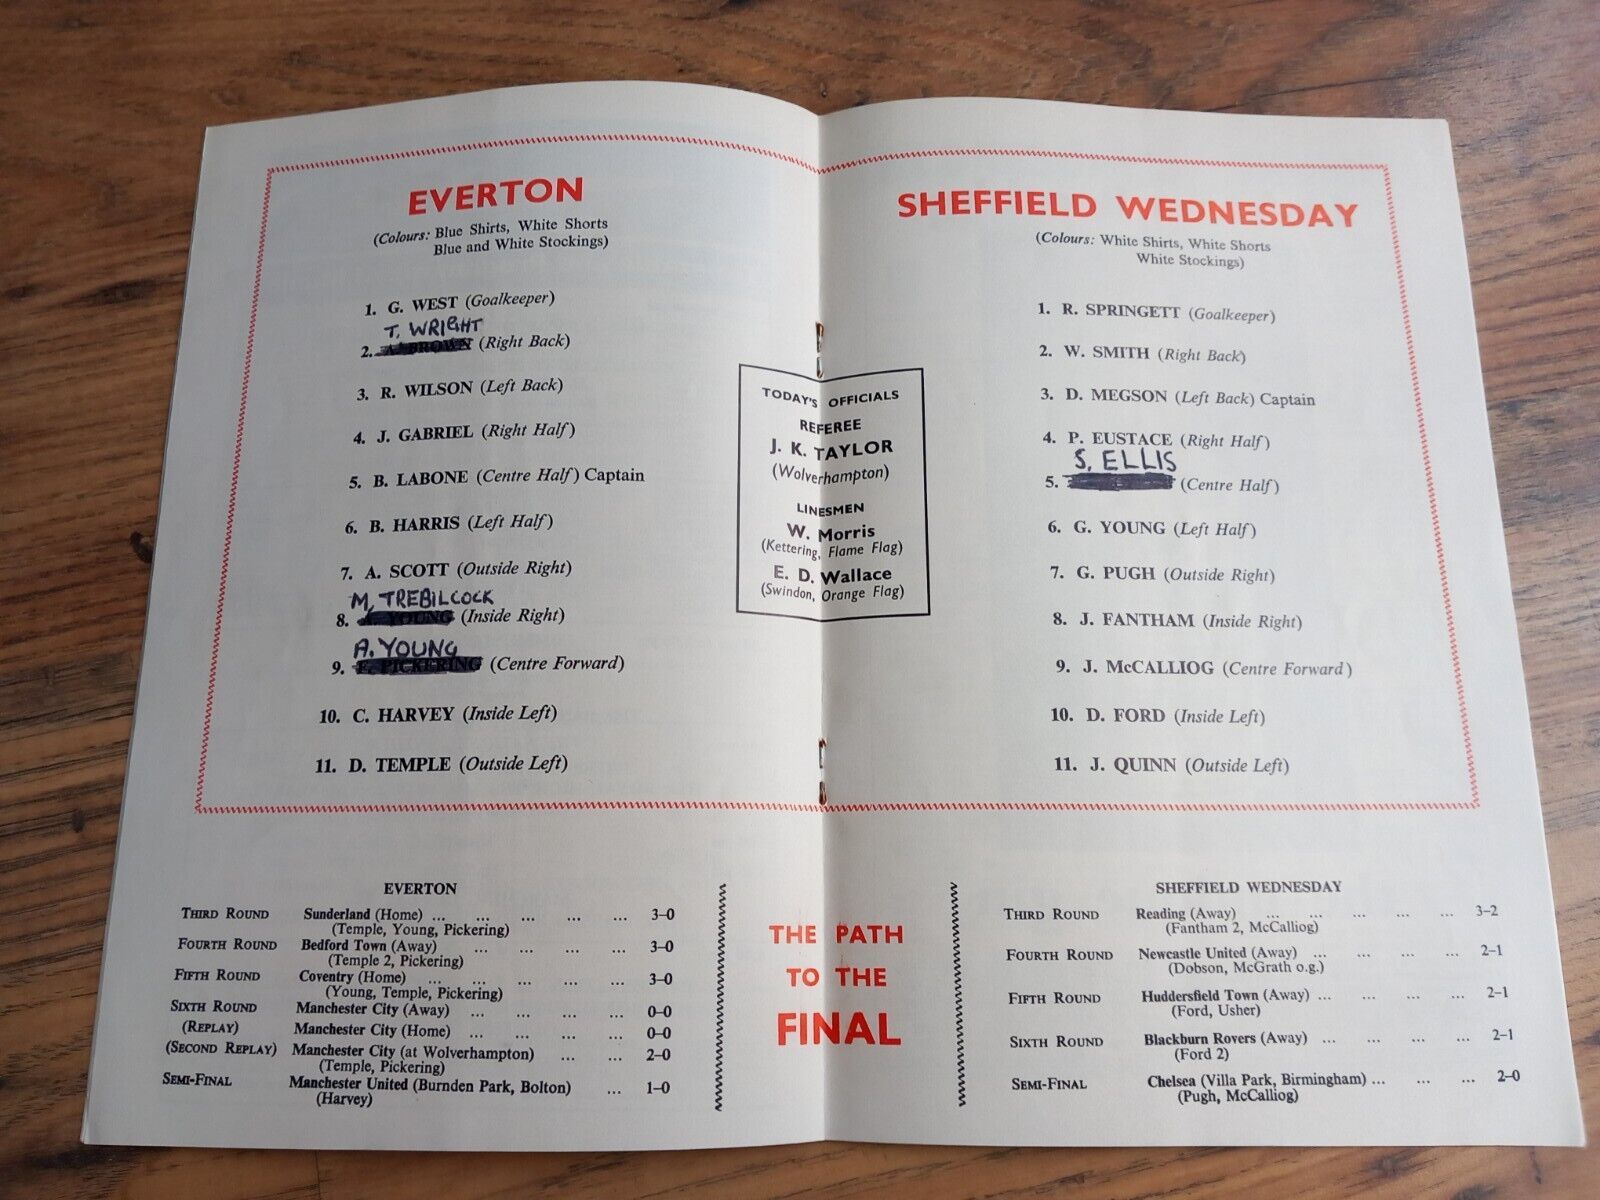 EVERTON
(Colours: Blue Shirts, White Shorts
Blue and White Stockings)
1. G. WEST (Goalkeeper)
T. WRIGHT
2. A. BROWN (Right Back)
3. R. WILSON (Left Back)
4. J. GABRIEL (Right Half)
5. B. LABONE (Centre Half) Captain
6. B. HARRIS (Left Half)
7. A. SCOTT (Outside Right)
M. TREBILCOCK
8. A. YOUNG (Inside Right)
A. YOUNG
9. F. PICKERING (Centre Forward)
10. C. HARVEY (Inside Left)
11. D. TEMPLE (Outside Left)
TODAY'S OFFICIALS
REFEREE
J. K. TAYLOR
(Wolverhampton)
LINESMEN
W. Morris
(Kettering, Flame Flag)
E. D. Wallace
(Swindon, Orange Flag)
SHEFFIELD WEDNESDAY
(Colours: White Shirts, White Shorts
White Stockings)
1. R. SPRINGETT (Goalkeeper)
2. W. SMITH (Right Back)
3. D. MEGSON (Left Back) Captain
4. P. EUSTACE (Right Half)
S. ELLIS
5. (Centre Half)
6. G. YOUNG (Left Half)
7. G. PUGH (Outside Right)
8. J. FANTHAM (Inside Right)
9. J. McCALLIOG (Centre Forward)
10. D. FORD (Inside Left)
11. J. QUINN (Outside Left)
EVERTON
THIRD ROUND Sunderland (Home) ... ... ... ... ... 3–0
(Temple, Young, Pickering)
FOURTH ROUND Bedford Town (Away) ... ... ... ... 3–0
(Temple 2, Pickering)
FIFTH ROUND Coventry (Home) ... ... ... ... ... 3–0
(Young, Temple, Pickering)
SIXTH ROUND Manchester City (Away) ... ... ... ... 0–0
(REPLAY) Manchester City (Home) ... ... ... ... 0–0
(SECOND REPLAY) Manchester City (at Wolverhampton) ... ... 2–0
(Temple, Pickering)
SEMI-FINAL Manchester United (Burnden Park, Bolton) ... 1–0
(Harvey)
THE PATH
TO THE
FINAL
SHEFFIELD WEDNESDAY
THIRD ROUND Reading (Away) ... ... ... ... ... 3–2
(Fantham 2, McCalliog)
FOURTH ROUND Newcastle United (Away) ... ... ... ... 2–1
(Dobson, McGrath o.g.)
FIFTH ROUND Huddersfield Town (Away) ... ... ... ... 2–1
(Ford, Usher)
SIXTH ROUND Blackburn Rovers (Away) ... ... ... ... 2–1
(Ford 2)
SEMI-FINAL Chelsea (Villa Park, Birmingham) ... ... ... 2–0
(Pugh, McCalliog)